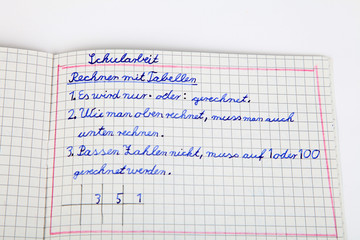 Schularbeit
Rechnen mit Tabellen
1. Es wird nur · oder : gerechnet.
2. Wie man oben rechnet, muss man auch
unten rechnen.
3. Passen Zahlen nicht, muss auf 1 oder 100
gerechnet werden.
3 5 1